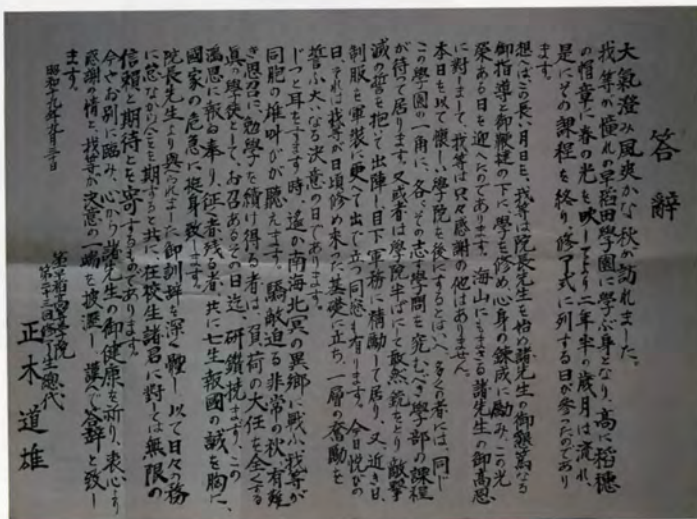 答辭
大氣澄み風爽かな秋が訪れました。
我等が憧れの早稻田學園に學ぶ身となり、高に稻穗
の帽章に春の光を映してより二年半の歳月は流れ、
是にその課程を終り、修了式に列する日が參つたのであり
ます。
想へばこの長い月日を、我等は院長先生を始め諸先生の御懇篤なる
御指導と御鞭撻の下に、學を修め、心身の錬成に勵み、この光
榮ある日を迎へたのであります。海山にもまさる諸先生の御高恩
に對しまして、我等は只々感謝の他はありません。
本日を以て懷しい學院を後にするとはいへ、多くの者には、同じ
この學園の一角に、各〻その志す學問を究むべき學部の課程
が待つて居ります。又或者は學院半ばにして敢然銃をとり、敵撃
滅の誓を抱いて出陣し目下軍務に精勵して居り、又、近き日、
制服を軍裝に更へて出で立つ同窓も有ります。今日悦びの
日、それは我等が日頃修め來つた基礎に立ち、一層の奮勵を
誓ふ大いなる決意の日であります。
じつと耳をすます時、遙か南海北冥の異郷に戰ふ我等が
同胞の雄叫びが聽えます。驕敵迫る非常の秋、有難
き思召に勉學を續け得る者は、負荷の大任を全くする
眞の學徒として、お召あるその日迄、研鑽撓まず、この
鴻恩に報ゐ奉り、征く者殘る者、共に七生報國の誠を胸に、
國家の危急に挺身致します。
院長先生より與へられました御訓辭を深く體し、以て日々の務
に怠なからんことを期すると共に、在校生諸君に對しては無限の
信頼と期待とを寄するものであります。
今やお別に臨み、心から諸先生の御健康を祈り、衷心より
感謝の情と、我等が決意の一端を披瀝し、謹んで答辭と致し
ます。
昭和十九年九月二十日
第一早稻田高等學院
第二十三回修了生總代
正木道雄